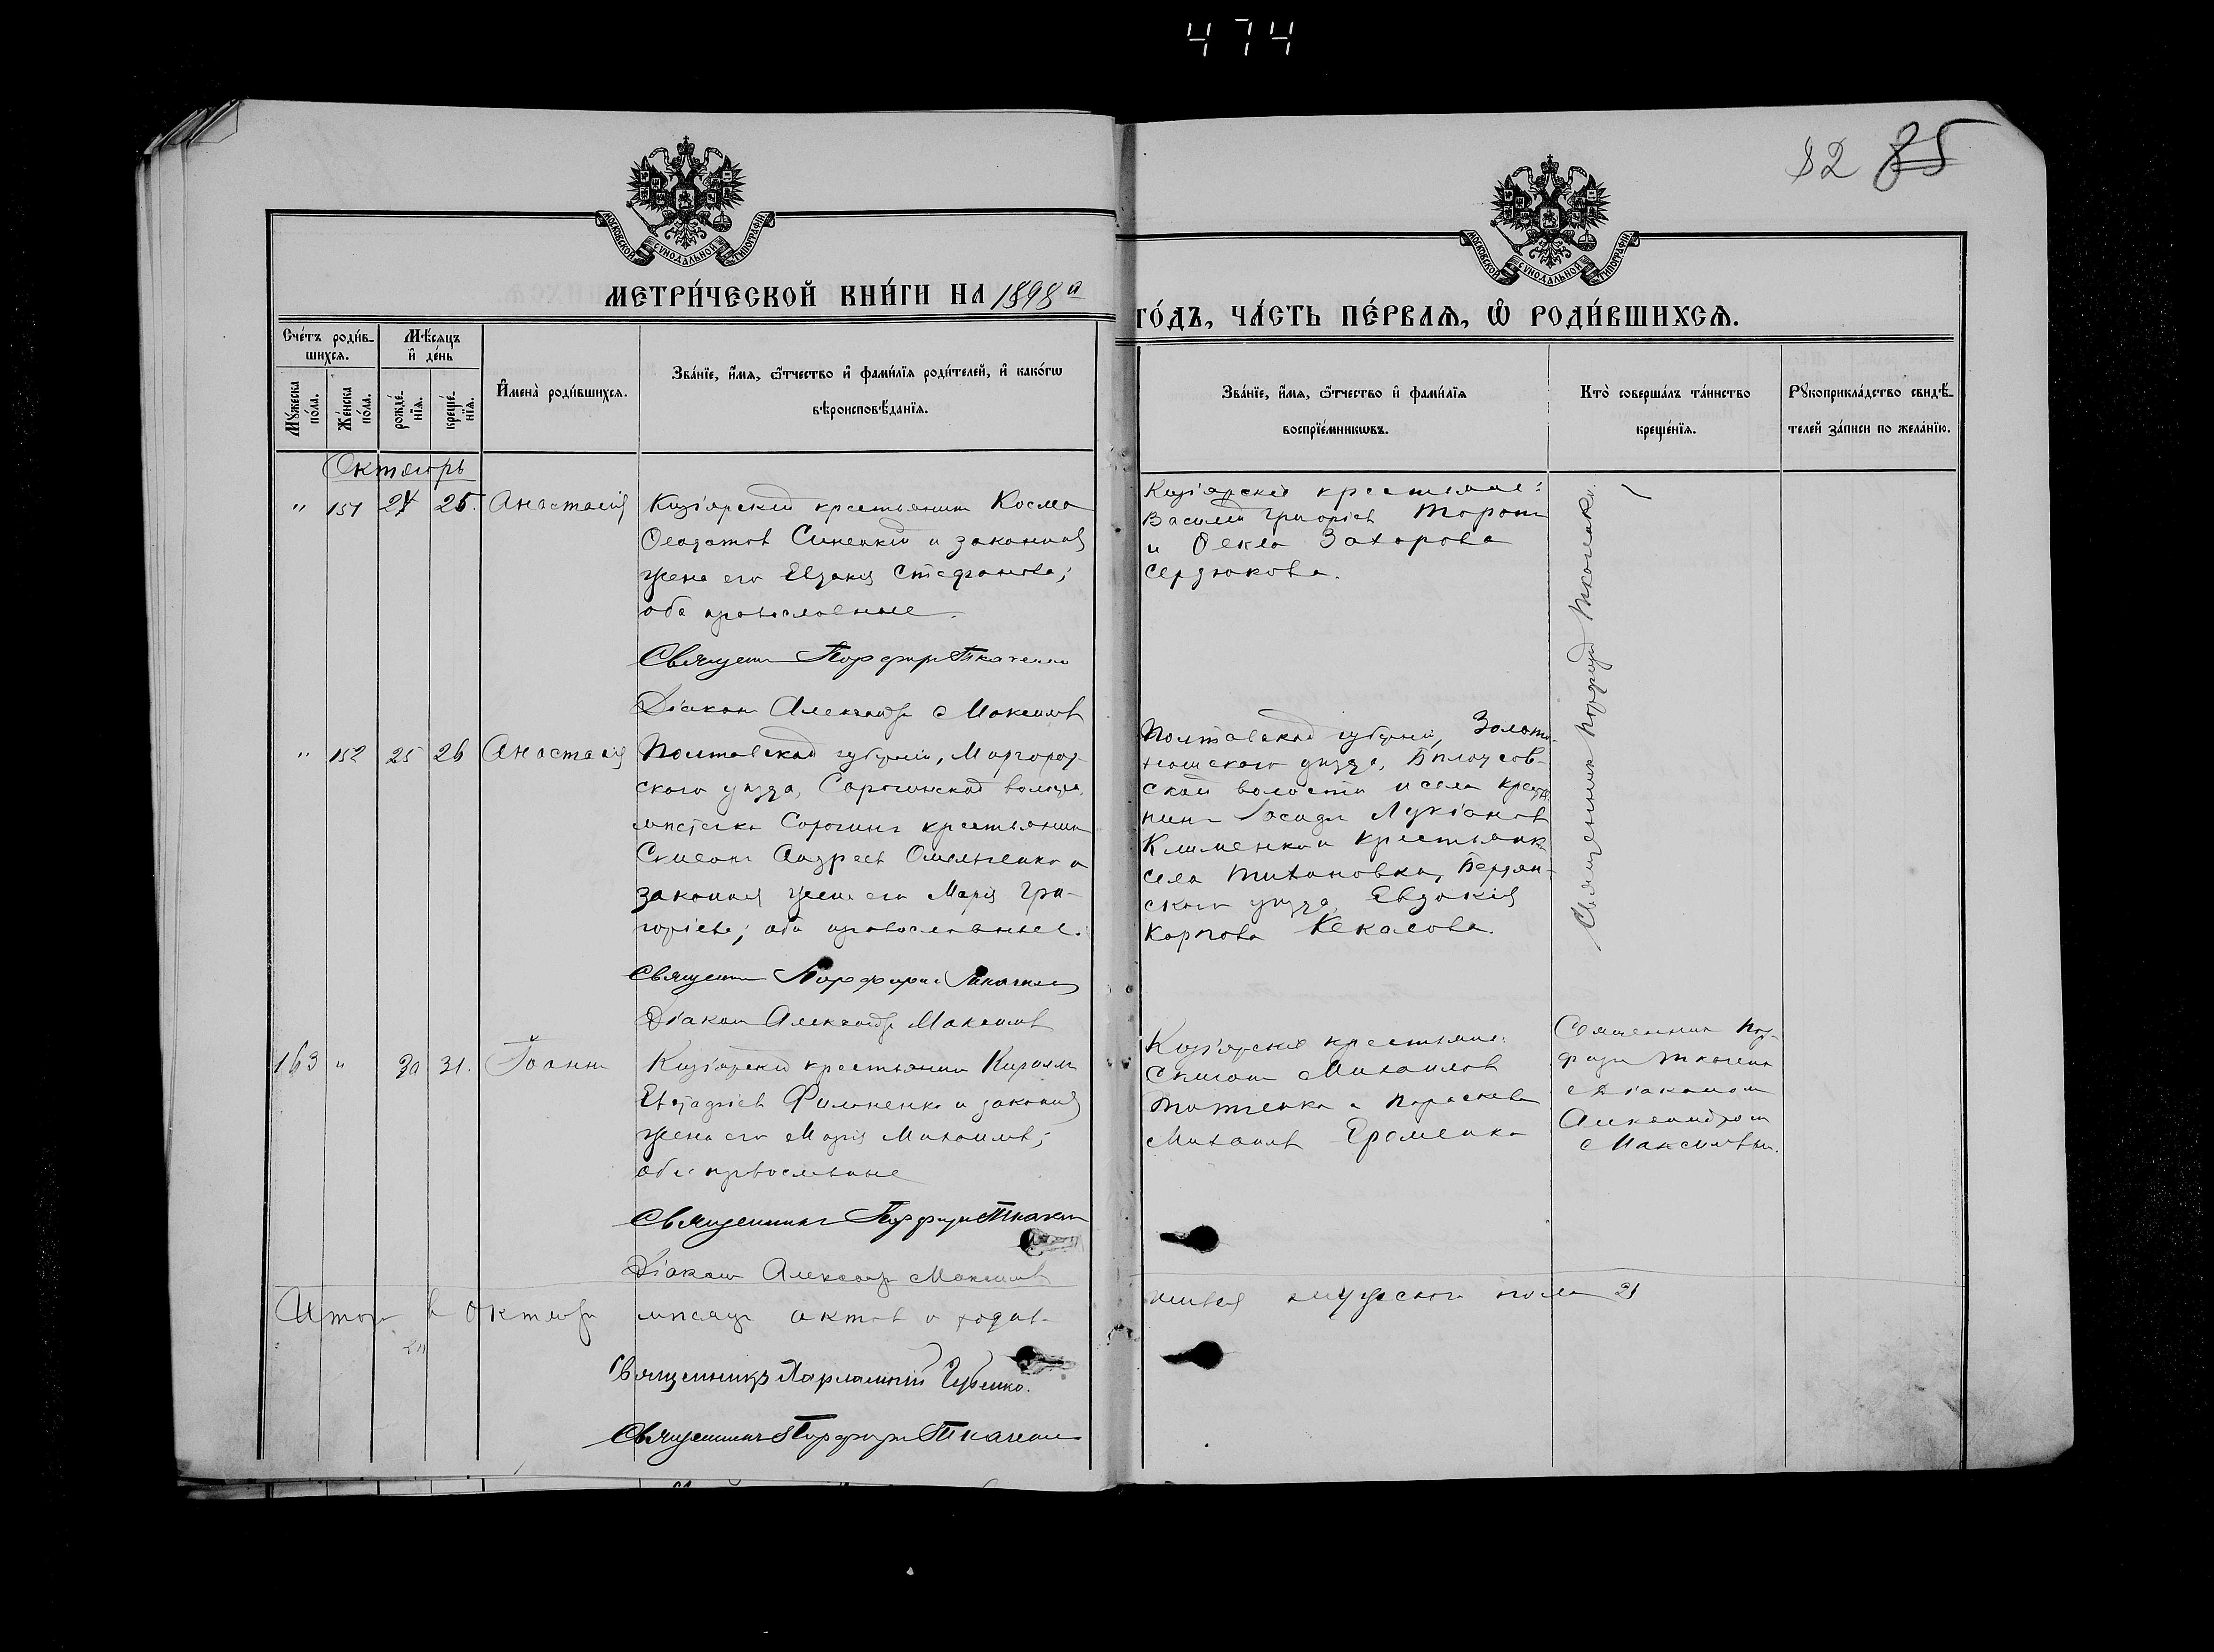 474
82 85
МОСКОВСКОЙ СУНОДАЛЬНОЙ ТИПОГРАФІИ
МОСКОВСКОЙ СУНОДАЛЬНОЙ ТИПОГРАФІИ
МЕТРИ́ЧЕСКОЙ КНИ́ГИ НА 1898 й
ГО́ДЪ, ЧА́СТЬ ПЕ́РВАѦ, Ѡ РОДИ́ВШИХСѦ.
Сче́тъ роди́в-
шихсѧ.
Мѣ́сѧцъ
и҆ де́нь
Мꙋжеска по́ла.
Же́нска по́ла.
рожде́нїѧ.
креще́нїѧ.
И҆мена̀ роди́вшихсѧ.
Зва́нїе, и҆́мѧ, ѻ҆́тчество и҆ фами́лїѧ роди́телей, и҆ како́гѡ
вѣроисповѣ́данїѧ.
Зва́нїе, и҆́мѧ, ѻ҆́тчество и҆ фами́лїѧ
воспрїе́мникѡвъ.
Кто̀ соверша́лъ та́инство
креще́нїѧ.
Рꙋкоприкла́дство свидѣ́-
телей за́писи по жела́нїю.
Октябрь
" 151 24 25. Анастасія
Кизіярскій крестьянинъ Косма
Синенкій и законная
жена его Евдокія Стефанова;
оба православные.
Священ Порфирій Ткаченко
Діаконъ Александръ Максимов
Кизіярскіе крестьяне:
Василій Григоріев
и Ѳекла Захарова
Сердюкова.
Священникъ Порфирій Ткаченко
" 152 25 26 Анастасія
Полтавской губерніи, Миргород-
скаго уѣзда, Сорочинской волости,
мѣстечка Сорочинъ крестьянинъ
Симеонъ Андреев Омельченко и
законная жена его Марія Гри-
горіева; оба православные.
Священ Порфирій Ткаченко
Діаконъ Александръ Максимов
Полтавской губерніи, Золото-
ношскаго уѣзда, Бѣлоусов-
ской волости и села крестья-
нинъ Лукіанов
Клименко и крестьянка
села Тихоновки, Бердян-
скаго уѣзда, Евдокія
Карпова Кекасова.
163 " 30 31. Іоаннъ
Кизіярскій крестьянинъ Кириллъ
Евстафіев Филоненко и законная
жена его Марія Михаилов;
оба православные
Священникъ Порфирій Ткаченко
Діаконъ Александръ Максимов
Кизіярскіе крестьяне:
Симеон Михаилов
и Параскева
Михаилов Еременко
Священникъ Пор-
фирій Ткаченко
с діакономъ
Александромъ
Максимовым.
Итого в октябрѣ мѣсяцѣ актов о родив-
шихся мужскаго пола 21
Священникъ Харлампій Губенко.
Священникъ Порфирій Ткаченко